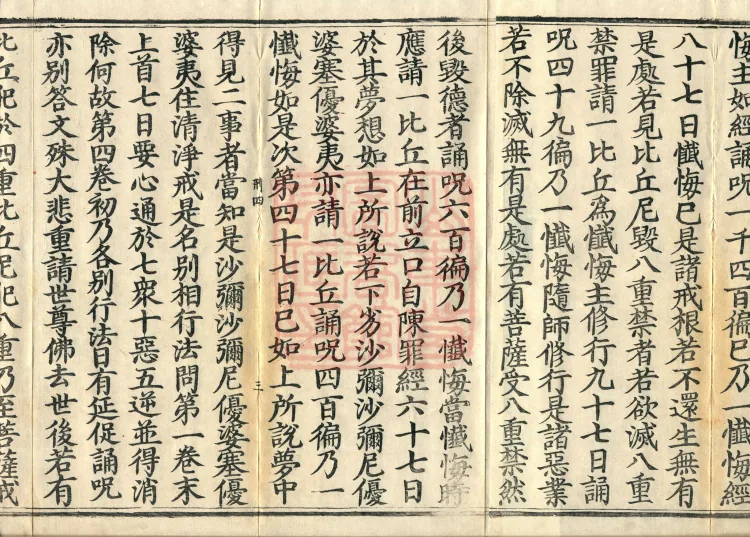 悔主如經誦呪一千四百徧已乃一懺悔經
八十七日懺悔已是諸戒根若不還生無有
是處若見比丘尼毀八重禁者若欲滅八重
禁罪請一比丘為懺悔主修行九十七日誦
呪四十九徧乃一懺悔隨師修行是諸惡業
若不除滅無有是處若有菩薩受八重禁然
後毀德者誦呪六百徧乃一懺悔當懺悔時
應請一比丘在前立口自陳罪經六十七日
於其夢想如上所說若下劣沙彌沙彌尼優
婆塞優婆夷亦請一比丘誦呪四百徧乃一
懺悔如是次第四十七日已如上所說夢中
荊四 三
得見二事者當知是沙彌沙彌尼優婆塞優
婆夷住清淨戒是名別相行法問第一卷末
上首七日要心通於七衆十惡五逆並得消
除何故第四卷初乃各別行法日有延促誦呪
亦別答文殊大悲重請世尊佛去世後若有
比丘犯於四重比丘尼犯八重乃至菩薩戒